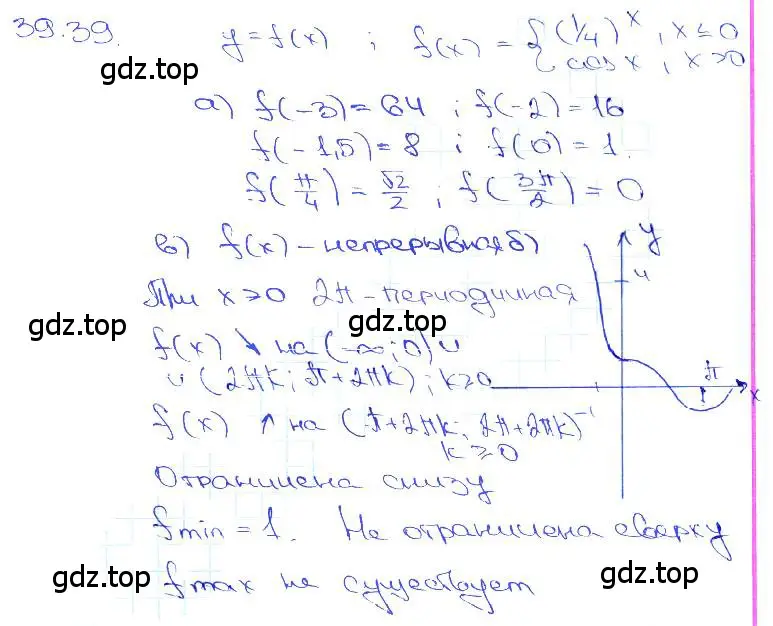 39.39. y = f(x) ; f(x) = { (1/4)^x , x ≤ 0
cos x , x > 0
gdz.top
а) f(-3) = 64 ; f(-2) = 16
f(-1,5) = 8 ; f(0) = 1.
f(π/4) = √2/2 ; f(3π/2) = 0
в) f(x) - непрерывная б)
y
4
При x > 0 2π - периодичная
gdz.top gdz.top
f(x) ↘ на (-∞; 0) ∪
∪ (2πk; π + 2πk) ; k ≥ 0
π
x
f(x) ↑ на (π + 2πk; 2π + 2πk)
-1
k ≥ 0
Ограничена снизу
f min = 1. Не ограничена сверху
gdz.top gdz.top
f max не существует